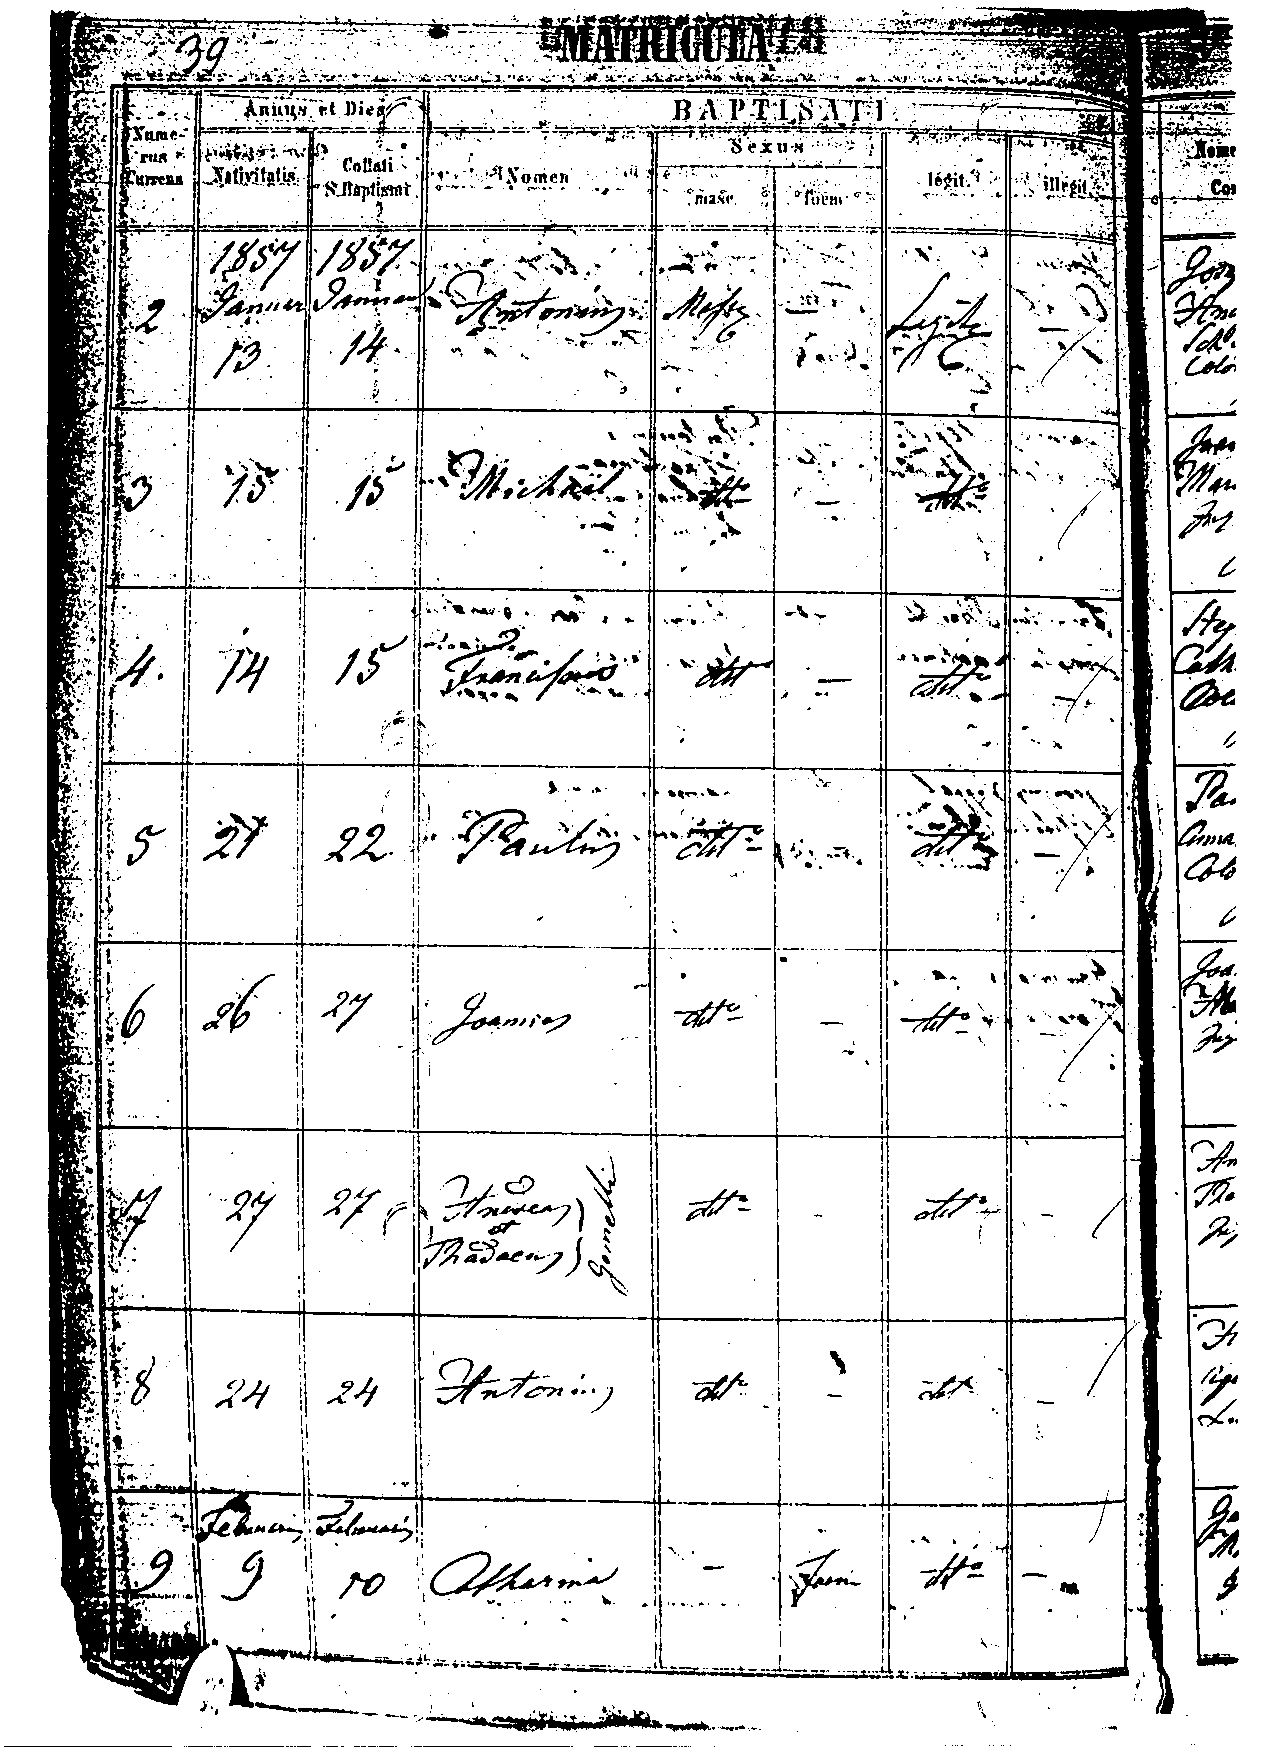 39
MATRICULA
Nume-
rus
Currens
Annus et Dies
Nativitatis
Collati
S. Baptismi
BAPTISATI
Nomen
Sexus
masc.
foem
legit.
illegit.
2
1857
Januar
13
1857
Januar
14
Antonius
—
—
3
15
15
Michael
dtto
—
dtto
4.
14
15
Franciscus
dtto
—
dtto
—
5
21
22
Paulus
dtto
dtto
—
6
26
27
Joannes
dtto
—
dtto
—
7
27
27
Andreas
et
Thadaeus
Gemelli
dtto
-
dtto
-
8
24
24
Antonius
dtto
-
dtto
-
9
Februarii
9
Februarii
10
Catharina
—
Foem
dtto
—